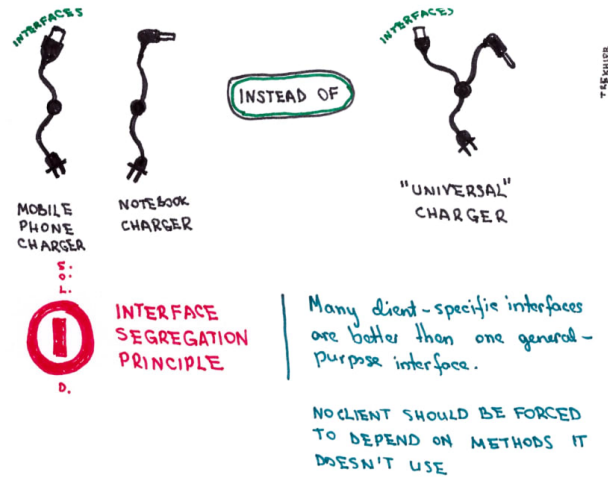 INTERFACES
INTERFACES
INSTEAD OF
MOBILE
PHONE
CHARGER
NOTEBOOK
CHARGER
"UNIVERSAL"
CHARGER
S.
O.
L.
I
D.
INTERFACE
SEGREGATION
PRINCIPLE
Many client-specific interfaces
are better than one general-
purpose interface.
NO CLIENT SHOULD BE FORCED
TO DEPEND ON METHODS IT
DOESN'T USE